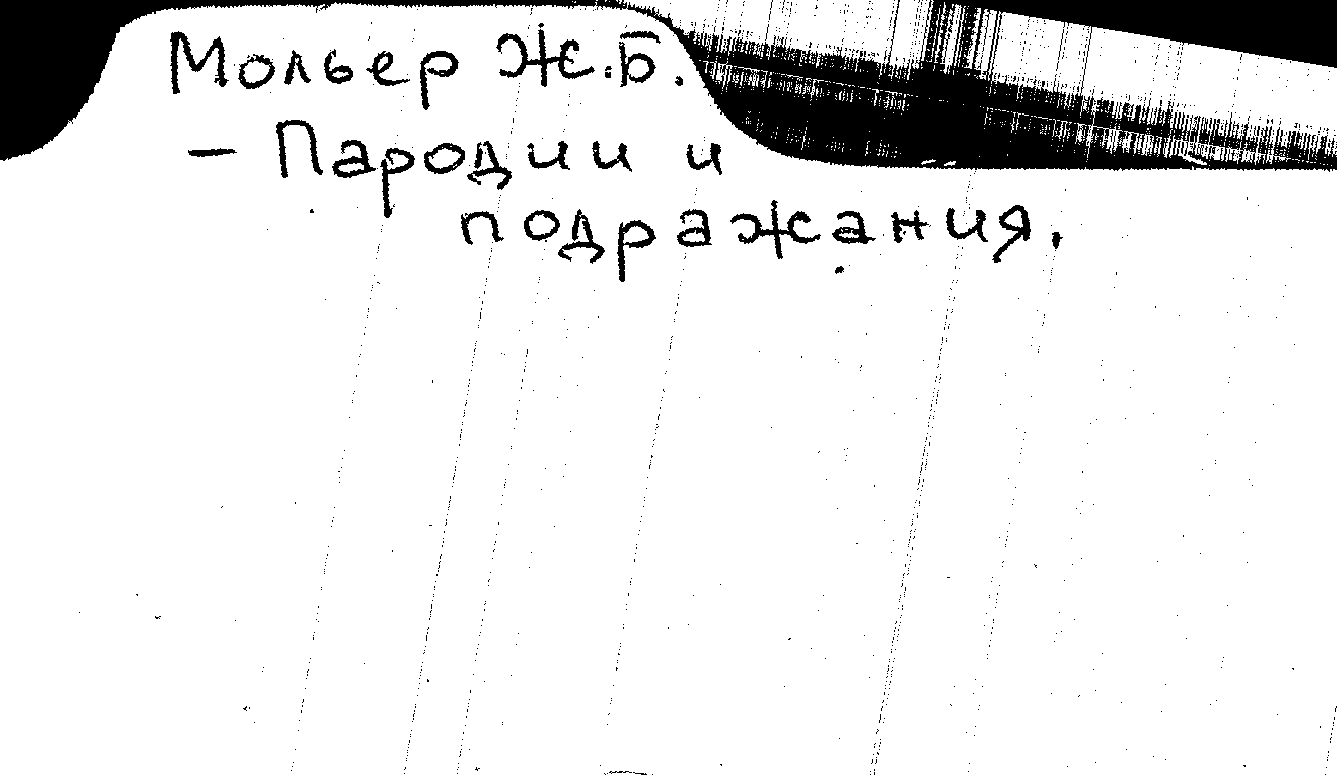 Мольер Ж.Б.
- Пародии и
подражания.